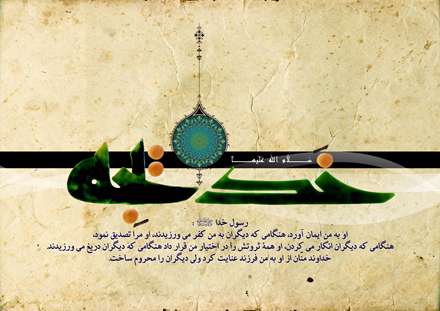 خدیجه
سلام الله علیها
رسول خدا ﷺ :
او به من ایمان آورد، هنگامی که دیگران به من کفر می ورزیدند، او مرا تصدیق نمود،
هنگامی که دیگران انکار می کردن، او همهٔ ثروتش را در اختیار من قرار داد هنگامی که دیگران دریغ می ورزیدند.
خداوند منان از او به من فرزند عنایت کرد ولی دیگران را محروم ساخت.